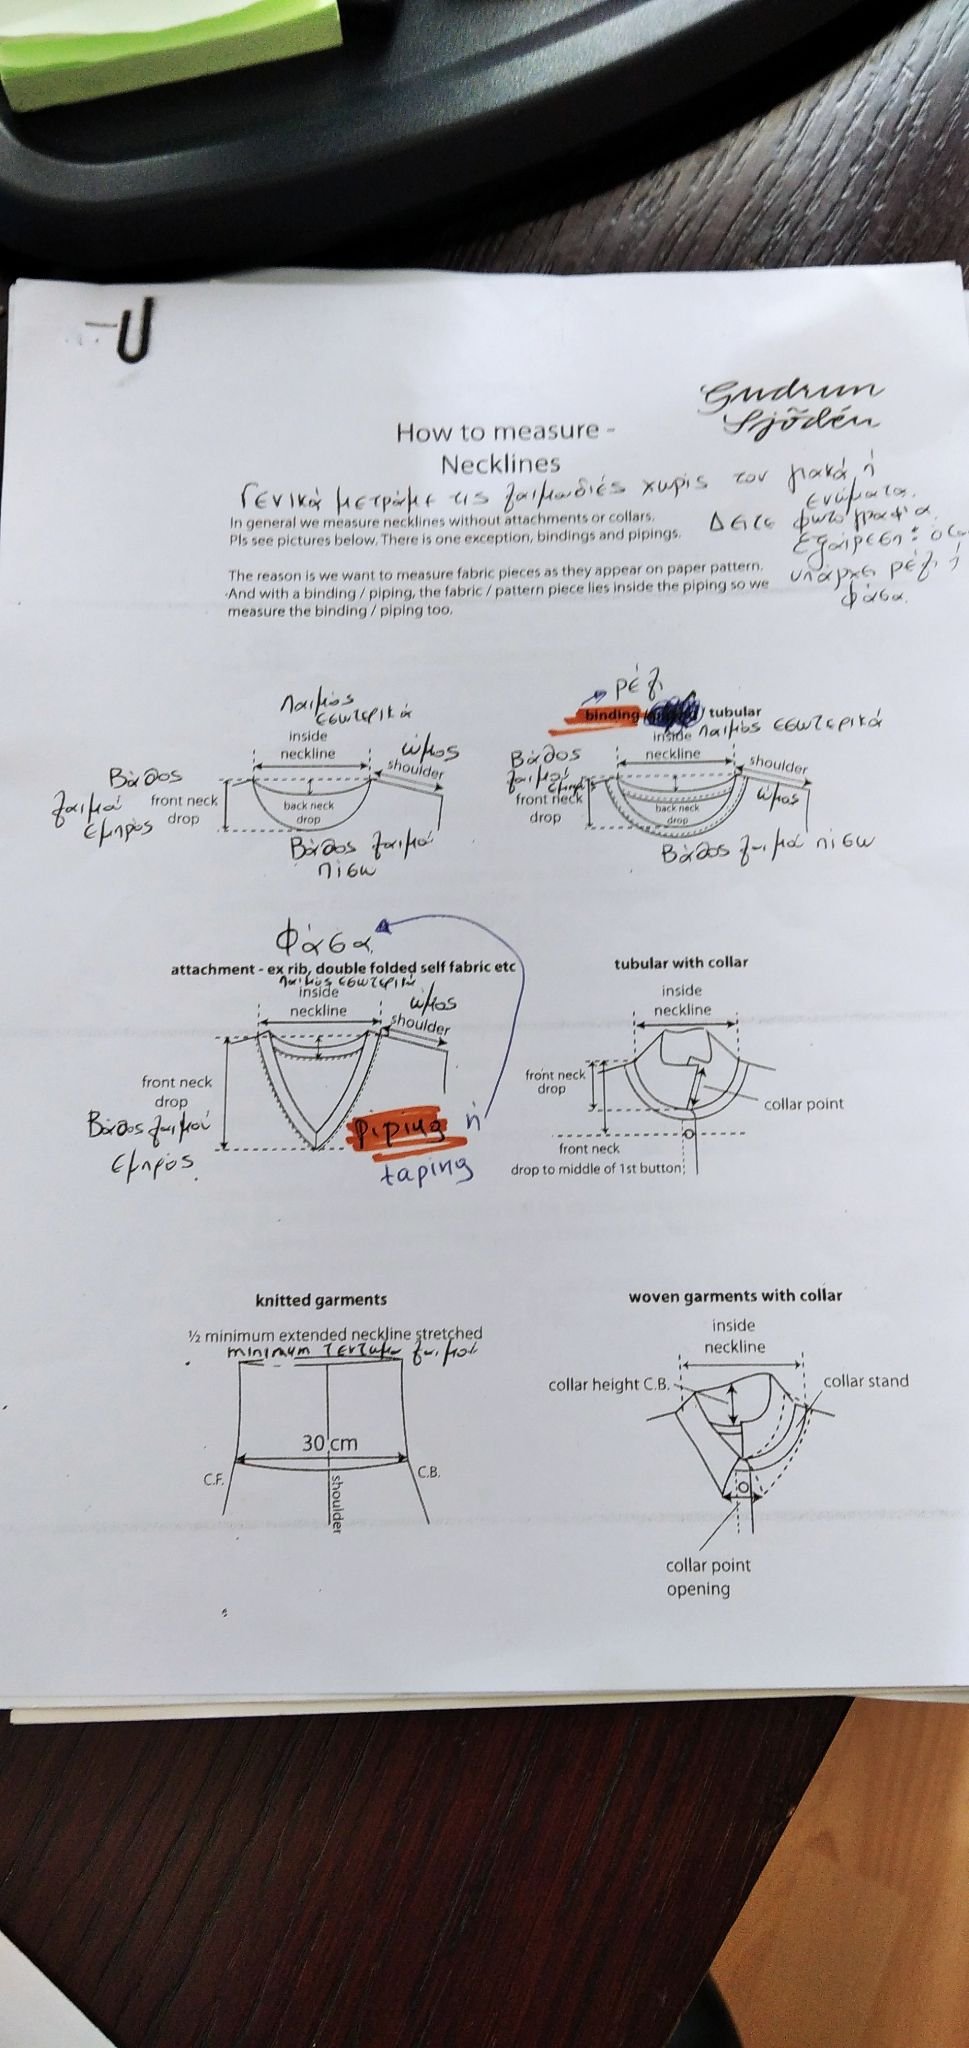 Gudrun
Sjödén
How to measure -
Necklines
Γενικά μετράμε τις λαιμουδιές χωρίς τον γιακά ή
ενώματα.
In general we measure necklines without attachments or collars.
Δείτε φωτογραφία.
Pls see pictures below. There is one exception, bindings and pipings.
Εξαίρεση: όταν
The reason is we want to measure fabric pieces as they appear on paper pattern.
υπάρχει ρέλι ή
And with a binding / piping, the fabric / pattern piece lies inside the piping so we
φάσα.
measure the binding / piping too.
Λαιμός
εσωτερικά
inside
neckline
ώμος
shoulder
Βάθος
λαιμού
εμπρός
front neck
drop
back neck
drop
Βάθος λαιμού
πίσω
ρέλι
binding / tubular
inside Λαιμός εσωτερικά
neckline
shoulder
ώμος
Βάθος
λαιμού εμπρός
front neck
drop
back neck
drop
Βάθος λαιμού πίσω
Φάσα
attachment - ex rib, double folded self fabric etc
Λαιμός εσωτερικά
inside
neckline
ώμος
shoulder
front neck
drop
Βάθος λαιμού
εμπρός.
piping ή
taping
tubular with collar
inside
neckline
front neck
drop
collar point
front neck
drop to middle of 1st button
knitted garments
½ minimum extended neckline stretched
minimum τέντωμα λαιμού
30 cm
C.F.
C.B.
shoulder
woven garments with collar
inside
neckline
collar height C.B.
collar stand
collar point
opening